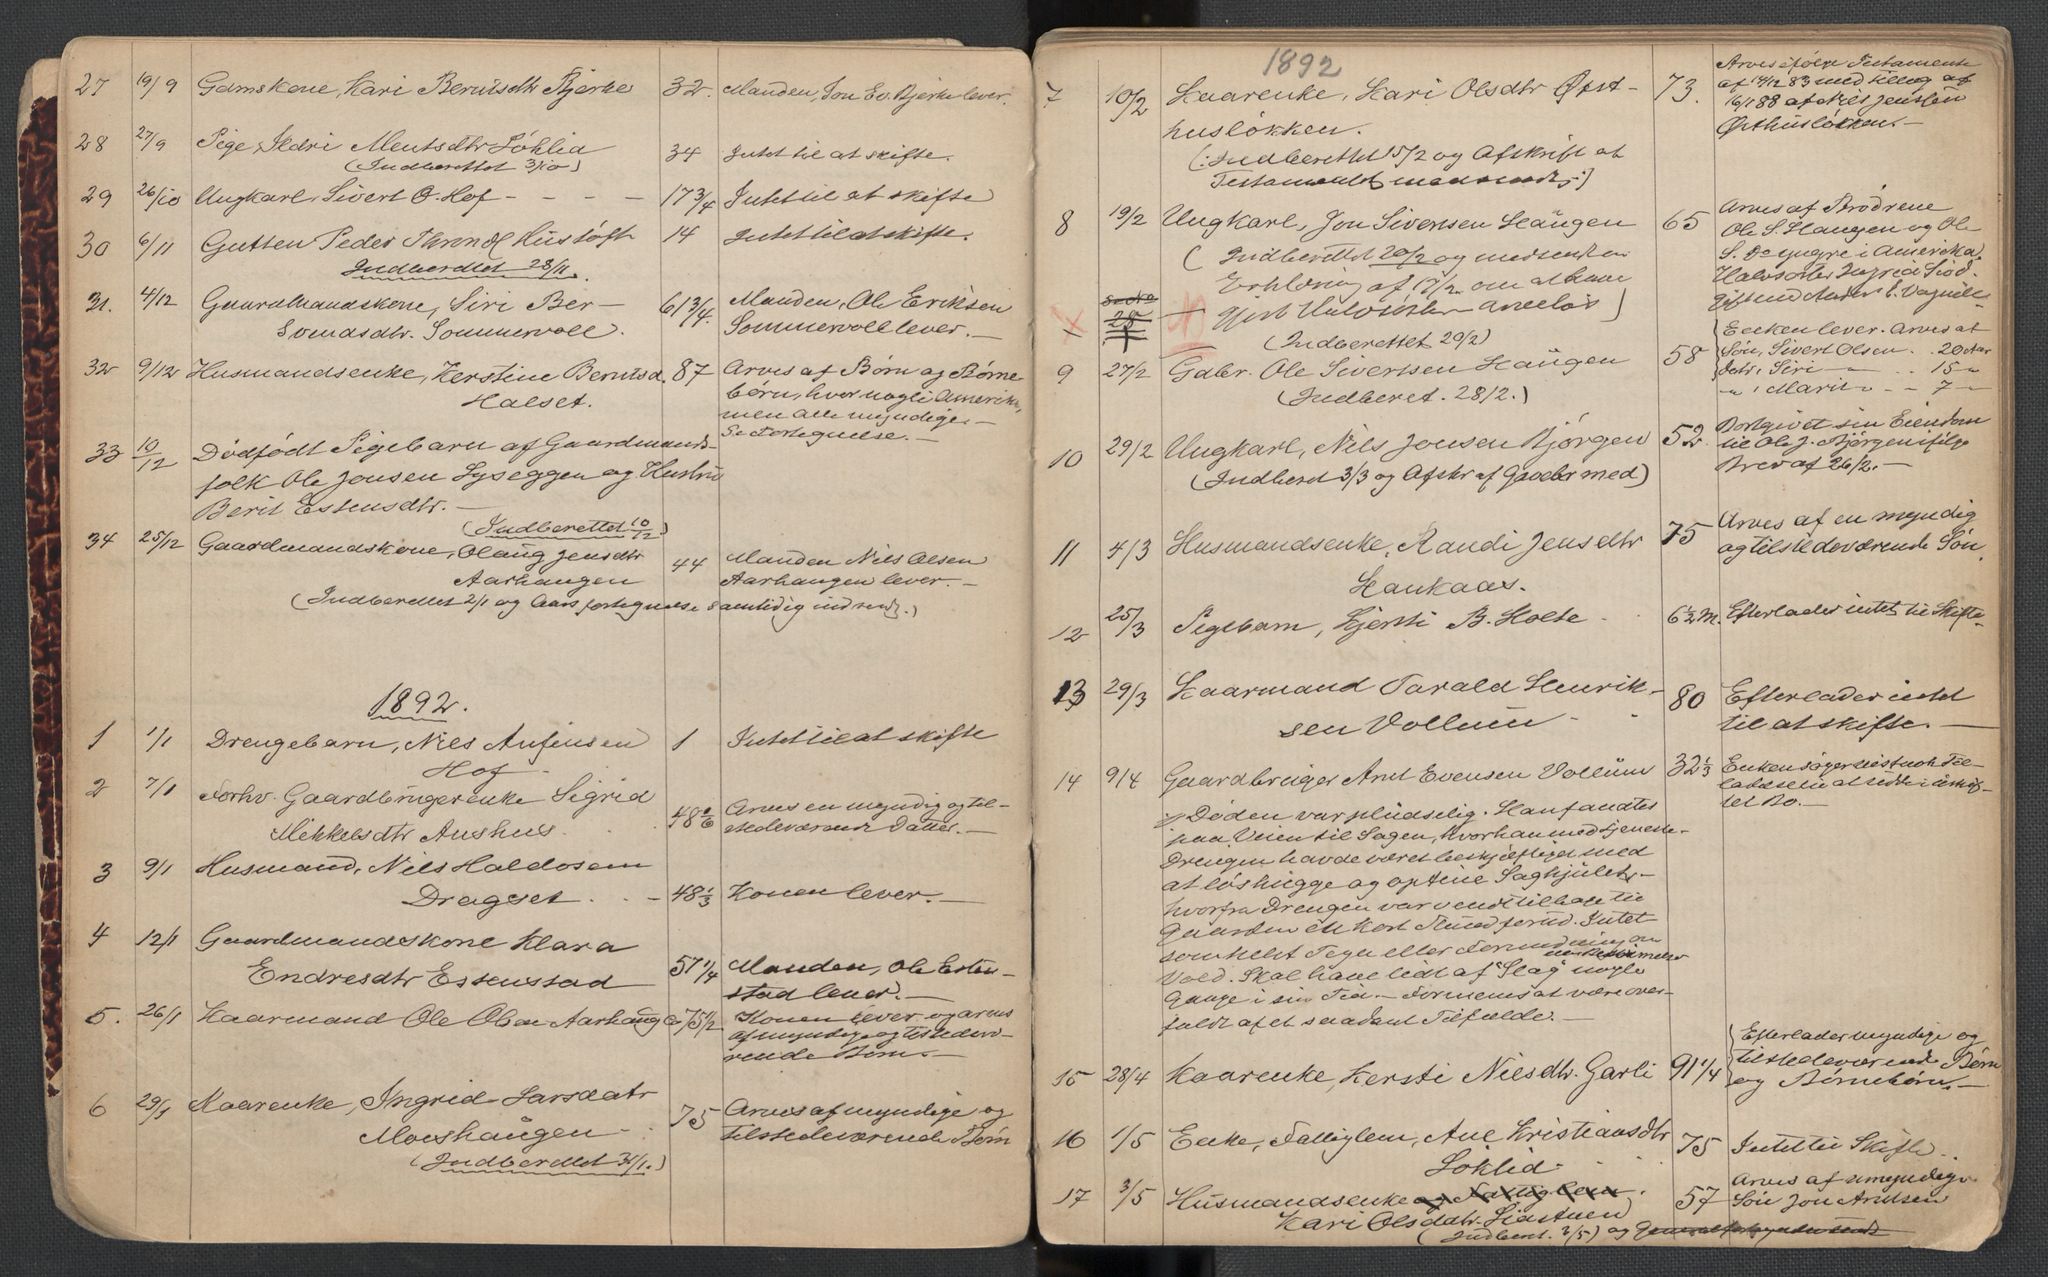 27 19/9 Gamskone, Kari Berntsdtr Bjerke 32. Manden, Jon Ev. Bjerke lever.
28 27/9 Pige, Ildri Mentsdtr Söhlia 34 Intet til at skifte.
(Indberettet 3/10)
29 26/10 Ungkarl, Sivert O. Hof - - - - 17 3/4 Intet til at skifte
30 6/11 Gutten Peder Hustöft 14 Intet til at skifte.
Indberettet 28/11.
31. 4/12 Gaardmandskone, Siri Ber- 61 3/4. Manden, Ole Eriksen
Svendsdtr. Sommervoll. Sommervoll lever. —
32 9/12 Husmandsenke, Kerstine Berntsd. 87 Arves af Børn og Børne-
Halset. børn, hvor nogle i Amerika,
men alle myndige -
Se Fortegnelse. —
33 10/12 Dödfödt Pigebarn af Gaardmands-
folk Ole Jonsen Lyseggen og Hustru
Berit Estensdtr. —
(Indberettet 10/12)
34 25/12 Gaardmandskone, Olaug Jensdtr 44 Manden Nils Olsen
Aarhaugen Aarhaugen lever. —
(Indberettet 2/1 og Aarsfortegnelse samtidig indsendt.)
1892.
1 1/1 Drengebarn, Nils Anfinsen 1 Intet til at skifte
Hof -
2 7/1 Forhv. Gaardbrugerenke Sigrid 48 Arves en myndig og til-
Mikkelsdtr Aushus. stedeværende Datter. —
3 9/1 Husmand, Nils Haldosen
Dragset. . . - 48 1/3 Konen lever. —
4 12/1 Gaardmandskone Klara
Endresdtr Estenstad 57 1/4 Manden, Ole Esten-
stad lever. —
5. 26/1 Kaarmand Ole Olsen Aarhaug 75 1/2 Konen lever og arves
af myndige og tilstedevæ-
rende Børn. —
6 29/1 Kaarenke, Ingrid Larsdatr 75 Arves af myndige og
Moeshaugen. tilstedeværende Børn
(Indberettet 31/1.)
1892
7 10/2 Kaarenke, Kari Olsdtr Øfst- 73. Arves ifølge Testamente
huslökken. af 14/12 83 med tillæg af
16/1 88 af Nils Jensen
Østhuslökken. —
(: Indberettet 15/2 og Afskrift af
Testamentet medsendt :)
8 19/2 Ungkarl, Jon Sivertsen Haugen 65 Arves af Brödrene
Ole S. Haugen og Ole
(Indberettet 20/2 og medsendt en S. Do yngre i Amerika,
Erklæring af 17/2 om at have Halvsöster Ingrid Sivd.
gjort Halvsöster arvelös) gift med E.
Se No
28
(Indberettet 29/2)
9 27/2 Gdbr. Ole Sivertsen Haugen 58 Enken lever. Arves af
Søn, Sivert Olsen. . 20 Aar
(Indberet. 28/2.) Datr. Siri — . . 15 "
— " Marit — - 7 "
10 29/2 Ungkarl, Nils Jonsen Bjørgen 52. Bortgivet sin Eiendom
til Ole J. Bjørgen ifølge
(Indberet 3/3 og Afskr af Gavebr med) Brev af 26/2. —
11 4/3 Husmandsenke, Randi Jensdtr 75 Arves af en myndig
Haukaas. og tilstedeværende Søn.
12 25/3 Pigebarn, Kjersti B. Holte . 6 1/2 M. Efterlader intet til Skifte
13 29/3 Kaarmand Tarald Henrik- 80 Efterlader intet
sen Vollum - til at skifte. —
14 9/4 Gaardbruger Arnt Evensen Vollum 32 1/3 Enken søger Til-
ladelse til at sidde i uskif-
tet Bo. —
Døden var pludselig. Han fandtes
paa Veien til Sagen, hvor han med tjeneste-
Drengen havde været beskjæftiget med
at løshugge og optine Saghjulet -
hvorfra Drengen var vendt tilbage til
Gaarden en kort Stund forud. Intet
somhelst Tegn eller Formodning om
Vold. Skal have lidt af "Slag" nogle
Gange i sin Tid. — Formenes at være over-
faldt af et saadant Tilfælde. —
15 28/4 Kaarenke, Kersti Nilsdtr. Garli 91 1/4 Efterlader myndige og
tilstedeværende Børn
og Børnebørn. —
16 1/5 Enke, Fattiglem, Ane Kristiansdtr 75 Intet til Skifte.
Söhlid -
17 3/5 Husmandsenke og Fattiglem. 57 Arves af myndig
Kari Olsdatr. Lidstuen Søn Jon Arntsen
(Indberet. 3/5) og